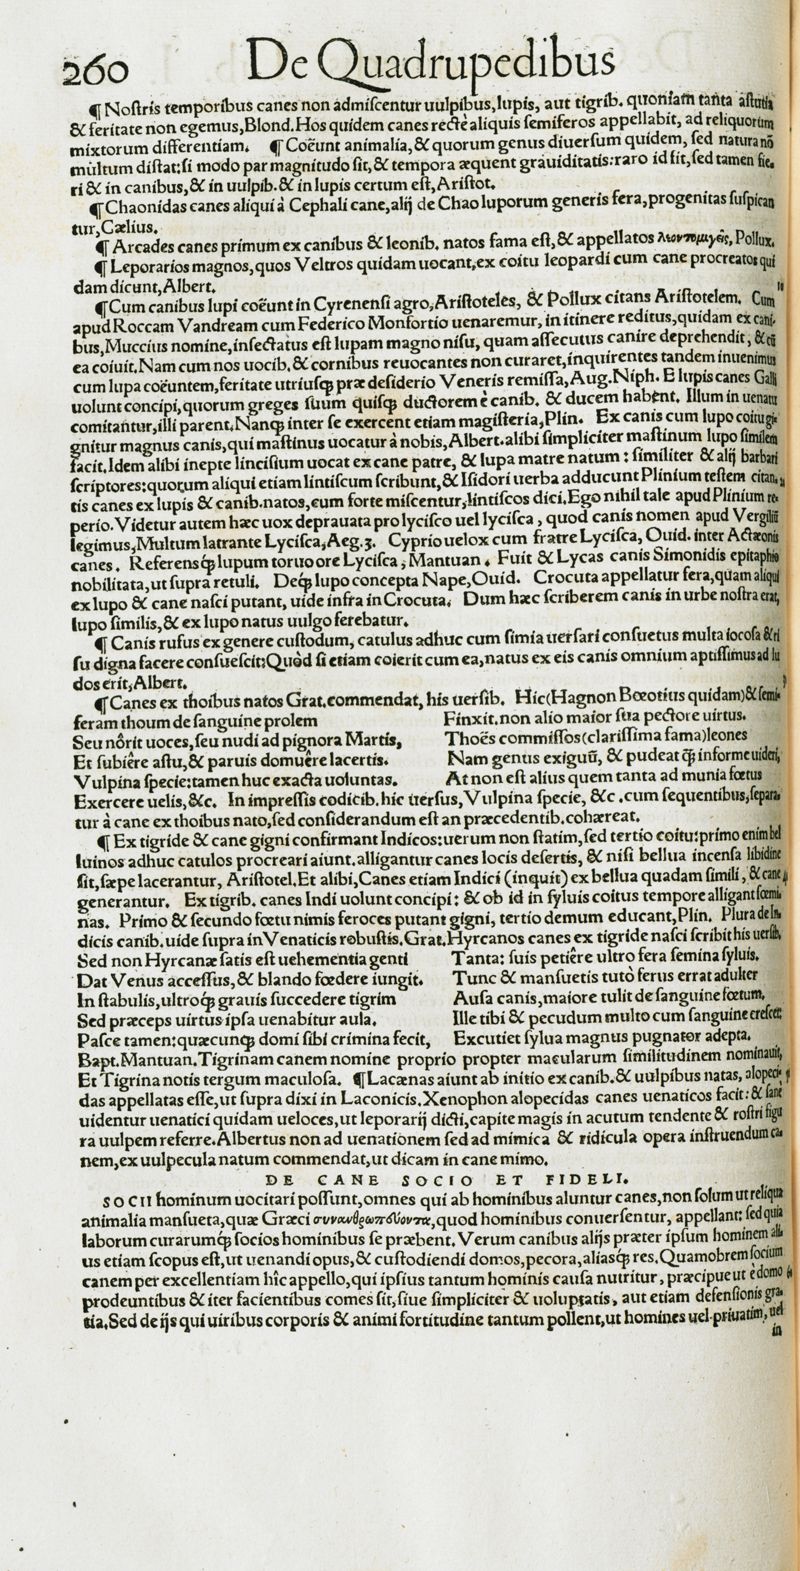 260 De Quadrupedibus
¶ Noſtris temporibus canes non admiſcentur uulpibus, lupis, aut tigrib. quoniam tanta aſtutia
& feritate non egemus, Blond. Hos quidem canes rectè aliquis ſemiferos appellabit, ad reliquorum
mixtorum differentiam. ¶ Coëunt animalia, & quorum genus diuerſum quidem, ſed natura nō
multum diſtat: ſi modo par magnitudo ſit, & tempora æquent grauiditatis: raro id fit, ſed tamen fie-
ri & in canibus, & in uulpib. & in lupis certum eſt, Ariſtot.
¶ Chaonidas canes aliqui à Cephali cane, alij de Chao luporum generis fera, progenitas ſuſpican
tur, Cælius.
¶ Arcades canes primum ex canibus & leonib. natos fama eſt, & appellatos λεοντομιγεῖς, Pollux.
¶ Leporarios magnos, quos Veltros quidam uocant, ex coitu leopardi cum cane procreatos qui
dam dicunt, Albert.
10
¶ Cum canibus lupi coëunt in Cyrenenſi agro, Ariſtoteles, & Pollux citans Ariſtotelem. Cum
apud Roccam Vandream cum Federico Monfortio uenaremur, in itinere reditus, quidam ex cani-
bus, Muccius nomine, inſectatus eſt lupam magno niſu, quam aſſecutus canire deprehendit, & cū
ea coiuit. Nam cum nos uocib. & cornibus reuocantes non curaret, inquirentes tandem inuenimus
cum lupa coëuntem, feritate utriuſq; præ deſiderio Veneris remiſſa, Aug. Niph. E lupis canes Galli
uolunt concipi, quorum greges ſuum quiſq; ductorem è canib. & ducem habent. Illum in uenatu
comitantur, illi parent. Nanq; inter ſe exercent etiam magiſteria, Plin. Ex canis cum lupo coitu gi-
gnitur magnus canis, qui maſtinus uocatur à nobis, Albert. alibi ſimpliciter maſtinum lupo ſimilem
facit. Idem alibi inepte linciſium uocat ex cane patre, & lupa matre natum: ſimiliter & alij barbari
ſcriptores: quorum aliqui etiam lintiſcum ſcribunt, & Iſidori uerba adducunt Plinium teſtem citan-
tis canes ex lupis & canib. natos, cum forte miſcentur, lintiſcos dici. Ego nihil tale apud Plinium re-
perio. Videtur autem hæc uox deprauata pro lyciſco uel lyciſca, quod canis nomen apud Vergiliū
legimus, Multum latrante Lyciſca, Aeg. 3. Cyprio uelox cum fratre Lyciſca, Ouid. inter Actæonis
canes. Referensq; lupum toruo ore Lyciſca, Mantuan. Fuit & Lycas canis Simonidis epitaphio
nobilitata, ut ſupra retuli. Deq; lupo concepta Nape, Ouid. Crocuta appellatur fera, quam aliqui
ex lupo & cane naſci putant, uide infra in Crocuta. Dum hæc ſcriberem canis in urbe noſtra erat,
lupo ſimilis, & ex lupo natus uulgo ferebatur.
¶ Canis rufus ex genere cuſtodum, catulus adhuc cum ſimia uerſari conſuetus multa iocoſa & ri
ſu digna facere conſueſcit: Quòd ſi etiam coierit cum ea, natus ex eis canis omnium aptiſſimus ad lu
dos erit, Albert.
¶ Canes ex thoibus natos Grat. commendat, his uerſib. Hic (Hagnon Bœotius quidam) & ſemi-
feram thoum de ſanguine prolem Finxit. non alio maior ſua pectore uirtus.
Seu nôrit uoces, ſeu nudi ad pignora Martis, Thoës commiſſos (clariſſima fama) leones
Et ſubiêre aſtu, & paruis domuêre lacertis. Nam genus exiguū, & pudeat q̃ informe uideri,
Vulpina ſpecie: tamen huc exacta uoluntas. At non eſt alius quem tanta ad munia fœtus
Exercere uelis, &c. In impreſſis codicib. hic uerſus, Vulpina ſpecie, &c. cum ſequentibus, ſepara-
tur à cane ex thoibus nato, ſed conſiderandum eſt an præcedentib. cohæreat.
¶ Ex tigride & cane gigni confirmant Indicos: uerum non ſtatim, ſed tertio coitu: primo enim bel
luinos adhuc catulos procreari aiunt. alligantur canes locis deſertis, & niſi bellua incenſa libidine
ſit, ſæpe lacerantur, Ariſtotel. Et alibi, Canes etiam Indici (inquit) ex bellua quadam ſimili, & cane
generantur. Ex tigrib. canes Indi uolunt concipi: & ob id in ſyluis coitus tempore alligant fœmi-
nas. Primo & ſecundo fœtu nimis feroces putant gigni, tertio demum educant, Plin. Plura de In-
dicis canib. uide ſupra in Venaticis robuſtis. Grat. Hyrcanos canes ex tigride naſci ſcribit his uerſib.
Sed non Hyrcanæ ſatis eſt uehementia genti Tanta: ſuis petiêre ultro fera ſemina ſyluis.
Dat Venus acceſſus, & blando fœdere iungit. Tunc & manſuetis tutò ferus errat adulter
In ſtabulis, ultroq; grauis ſuccedere tigrim Auſa canis, maiore tulit de ſanguine fœtum.
Sed præceps uirtus ipſa uenabitur aula. Ille tibi & pecudum multo cum ſanguine creſcet:
Paſce tamen: quæcunq; domi ſibi crimina fecit, Excutiet ſylua magnus pugnator adepta.
Bapt. Mantuan. Tigrinam canem nomine proprio propter macularum ſimilitudinem nominauit,
Et Tigrina notis tergum maculoſa. ¶ Lacænas aiunt ab initio ex canib. & uulpibus natas, alopeci-
das appellatas eſſe, ut ſupra dixi in Laconicis. Xenophon alopecidas canes uenaticos facit: & ſane
uidentur uenatici quidam ueloces, ut leporarij dicti, capite magis in acutum tendente & roſtri figu
ra uulpem referre. Albertus non ad uenationem ſed ad mimica & ridicula opera inſtruendum ca-
nem, ex uulpecula natum commendat, ut dicam in cane mimo.
DE CANE SOCIO ET FIDELI.
SOCII hominum uocitari poſſunt, omnes qui ab hominibus aluntur canes, non ſolum ut reliqua
animalia manſueta, quæ Græci συνανθρωπεύοντα, quod hominibus conuerſentur, appellant: ſed quia
laborum curarumq; ſocios hominibus ſe præbent. Verum canibus alijs præter ipſum hominem ali-
us etiam ſcopus eſt, ut uenandi opus, & cuſtodiendi domos, pecora, aliasq; res. Quamobrem ſocium
canem per excellentiam hîc appello, qui ipſius tantum hominis cauſa nutritur, præcipue ut è domo
prodeuntibus & iter facientibus comes ſit, ſiue ſimpliciter & uoluptatis, aut etiam defenſionis gra-
tia. Sed de ijs qui uiribus corporis & animi fortitudine tantum pollent, ut homines uel priuatim, uel
in